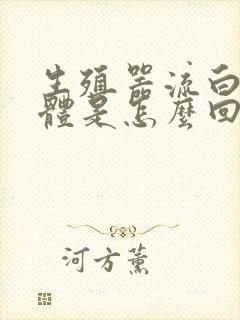 生殖器流白
體是怎麼回
河方薰